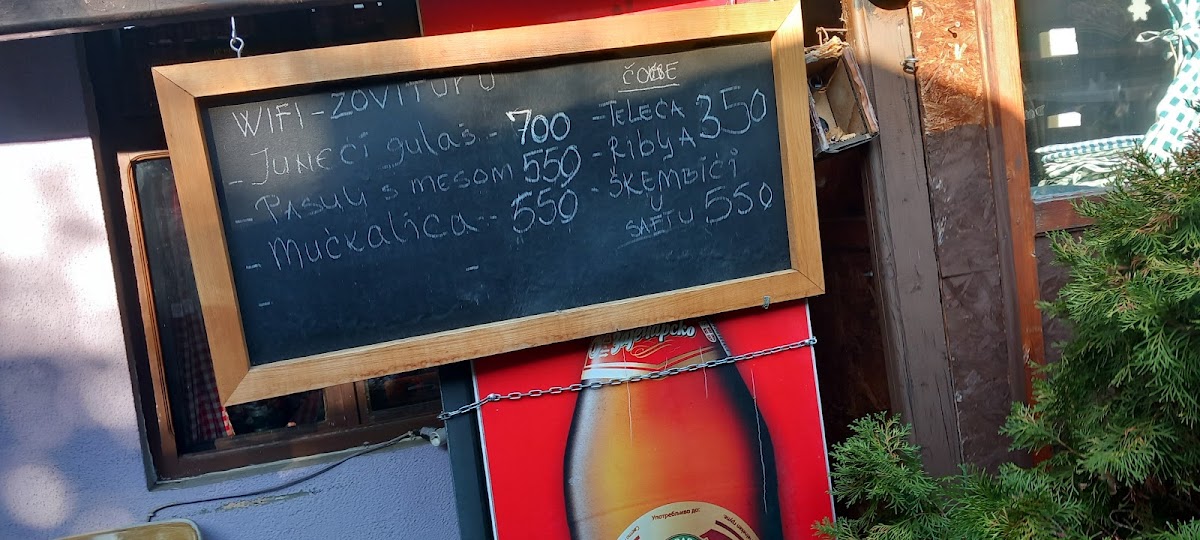 WIFI - ZOVITURU
- JUNEĆI gulaš - 700
- PASULJ S mESOM 550
- Mućkalica - 550
-
-
ČORBE
- TELEĆA 350
- RIBLJA
- ŠKEMBIĆI
U
SAFTU 550
Јагодинско
Употребљиво до: